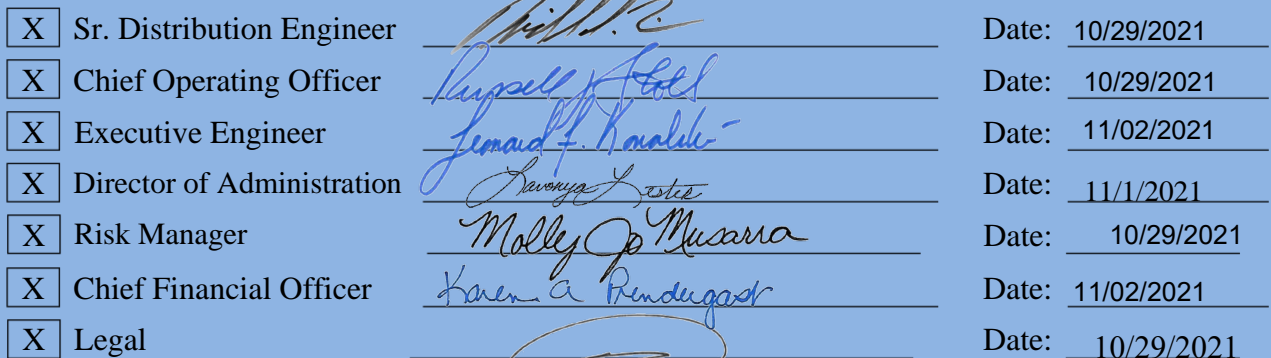 X Sr. Distribution Engineer Date: 10/29/2021
X Chief Operating Officer Russell J Stoll Date: 10/29/2021
X Executive Engineer Leonard F. Kowalski Date: 11/02/2021
X Director of Administration Lavonya Lester Date: 11/1/2021
X Risk Manager Molly Jo Musarra Date: 10/29/2021
X Chief Financial Officer Karen a Prendergast Date: 11/02/2021
X Legal Date: 10/29/2021